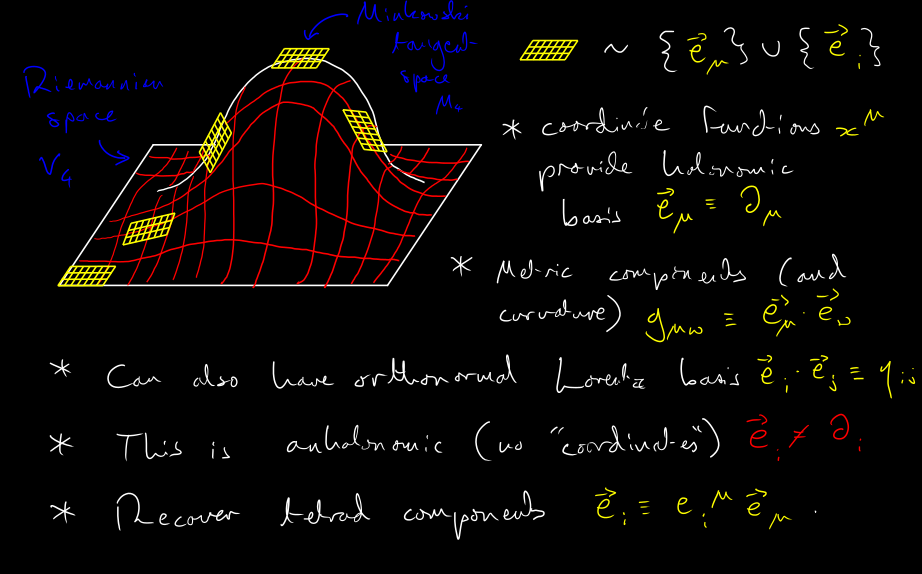 Minkowski
tangent
space
M₄
Riemannian
space
V₄
~ {e⃗_μ} ∪ {e⃗_i}
* coordinate functions x^μ
provide holonomic
basis e⃗_μ ≡ ∂_μ
* Metric components (and
curvature) g_μν ≡ e⃗_μ · e⃗_ν
* Can also have orthonormal Lorentz basis e⃗_i · e⃗_j ≡ η_ij
* This is anholonomic (no "coordinates") e⃗_i ≠ ∂_i
* Recover tetrad components e⃗_i ≡ e_i^μ e⃗_μ .